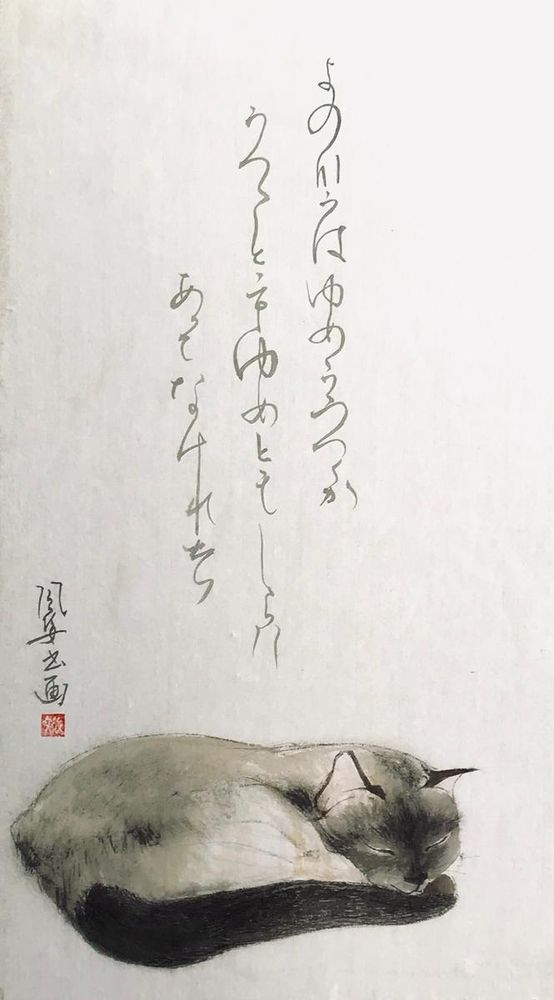 よのなかはゆめかうつつか
うつゝともゆめともしらす
ありてなけれは
書画